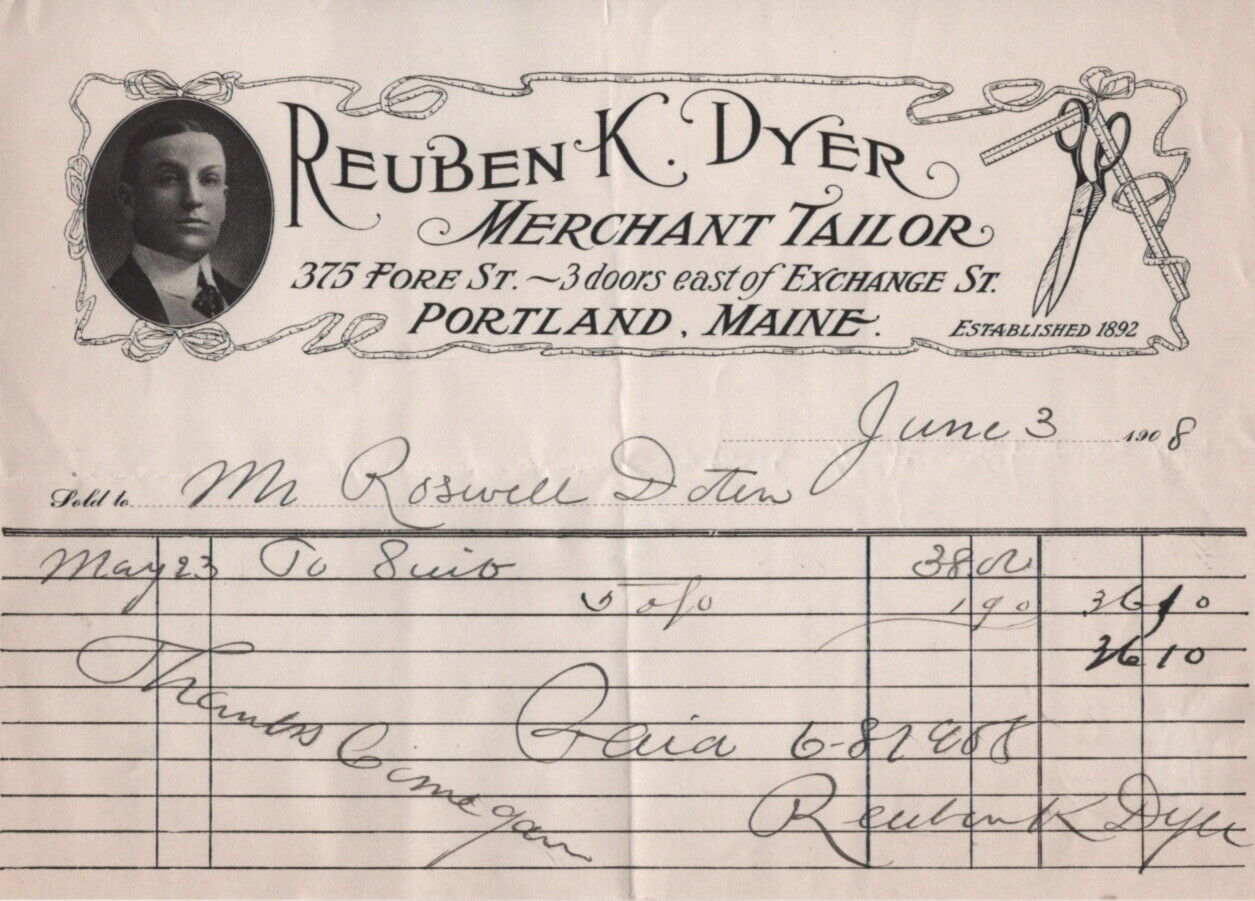 REUBEN K. DYER
MERCHANT TAILOR
375 FORE ST. ~ 3 doors east of EXCHANGE ST.
PORTLAND, MAINE.
ESTABLISHED 1892
June 3 1908
Sold to Mr Roswell Doten
May 23 To Suit 38.00
5 o/o 1 90 36 10
36 10
Thanks Come again
Paid 6-8 1908
Reuben K Dyer